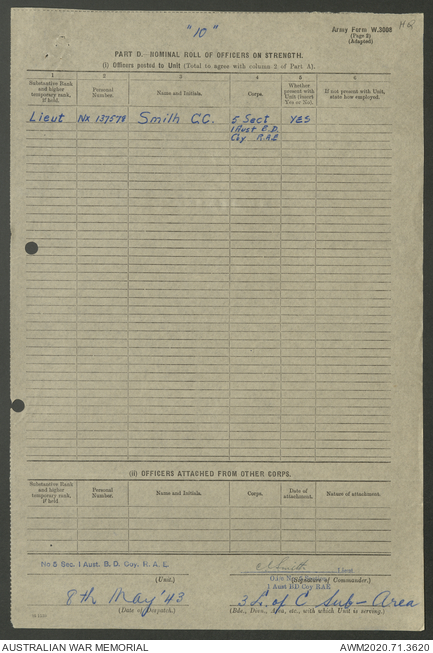 "10"
Army Form W.3008
(Page 2)
(Adapted)
PART D.—NOMINAL ROLL OF OFFICERS ON STRENGTH.
(i) Officers posted to Unit (Total to agree with column 2 of Part A).
1 2 3 4 5 6
Substantive Rank and higher temporary rank, if held. Personal Number. Name and Initials. Corps. Whether present with Unit (Insert Yes or No). If not present with Unit, state how employed.
Lieut NX 137578 Smith C.C. 5 Sect YES
1 Aust B.D.
Coy R.A.E
(ii) OFFICERS ATTACHED FROM OTHER CORPS.
Substantive Rank and higher temporary rank, if held. Personal Number. Name and Initials. Corps. Date of attachment. Nature of attachment.
No 5 Sec. 1 Aust. B. D. Coy. R. A. E. Lieut
(Unit.) (Signature of Commander.)
1 Aust BD Coy RAE
8th May '43 3 L. of C Sub-Area
(Date of Despatch.) (Bde., Divn., Area, etc., with which Unit is serving.)
AUSTRALIAN WAR MEMORIAL AWM2020.71.3620